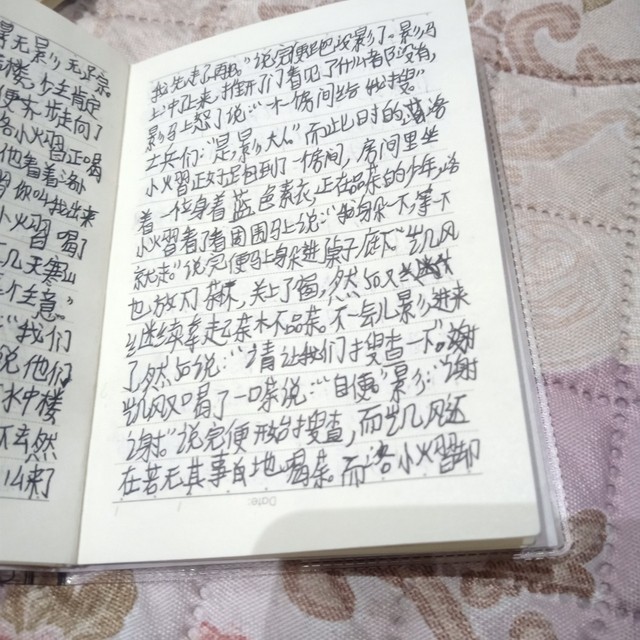 无影，无踪
茶楼，少主肯定
便木一步走向了
洛小火習正喝
他看着洛小
你叫找出来
小火習喝了
几天寒山
个主意。
"我们
说他们
水中楼
不玄然
么来了
我先走了再见。"说完便把收影了。影马
上冲了上来，推开门看见了什么者都没有，
影马上怒了说："一个房间给我搜"
士兵们："是，影大人。"而此时的洛
小火習正好走到了一个房间，房间里坐
着一位身着蓝色素衣，正在品茶的少年，洛
小火習看了看周围马上说："我躲一下，等下
就走"说完便马上躲进桌子底下。凯风
也放下茶，关上了窗，然后又
继续拿起了茶水品茶，不一会儿影进来
了然后说："请让我们搜查一下。"
凯风又喝了一口茶说："自便"影："谢
谢。"说完便开始搜查，而凯风还
在若无其事自地喝茶。而洛小火習却
Date: